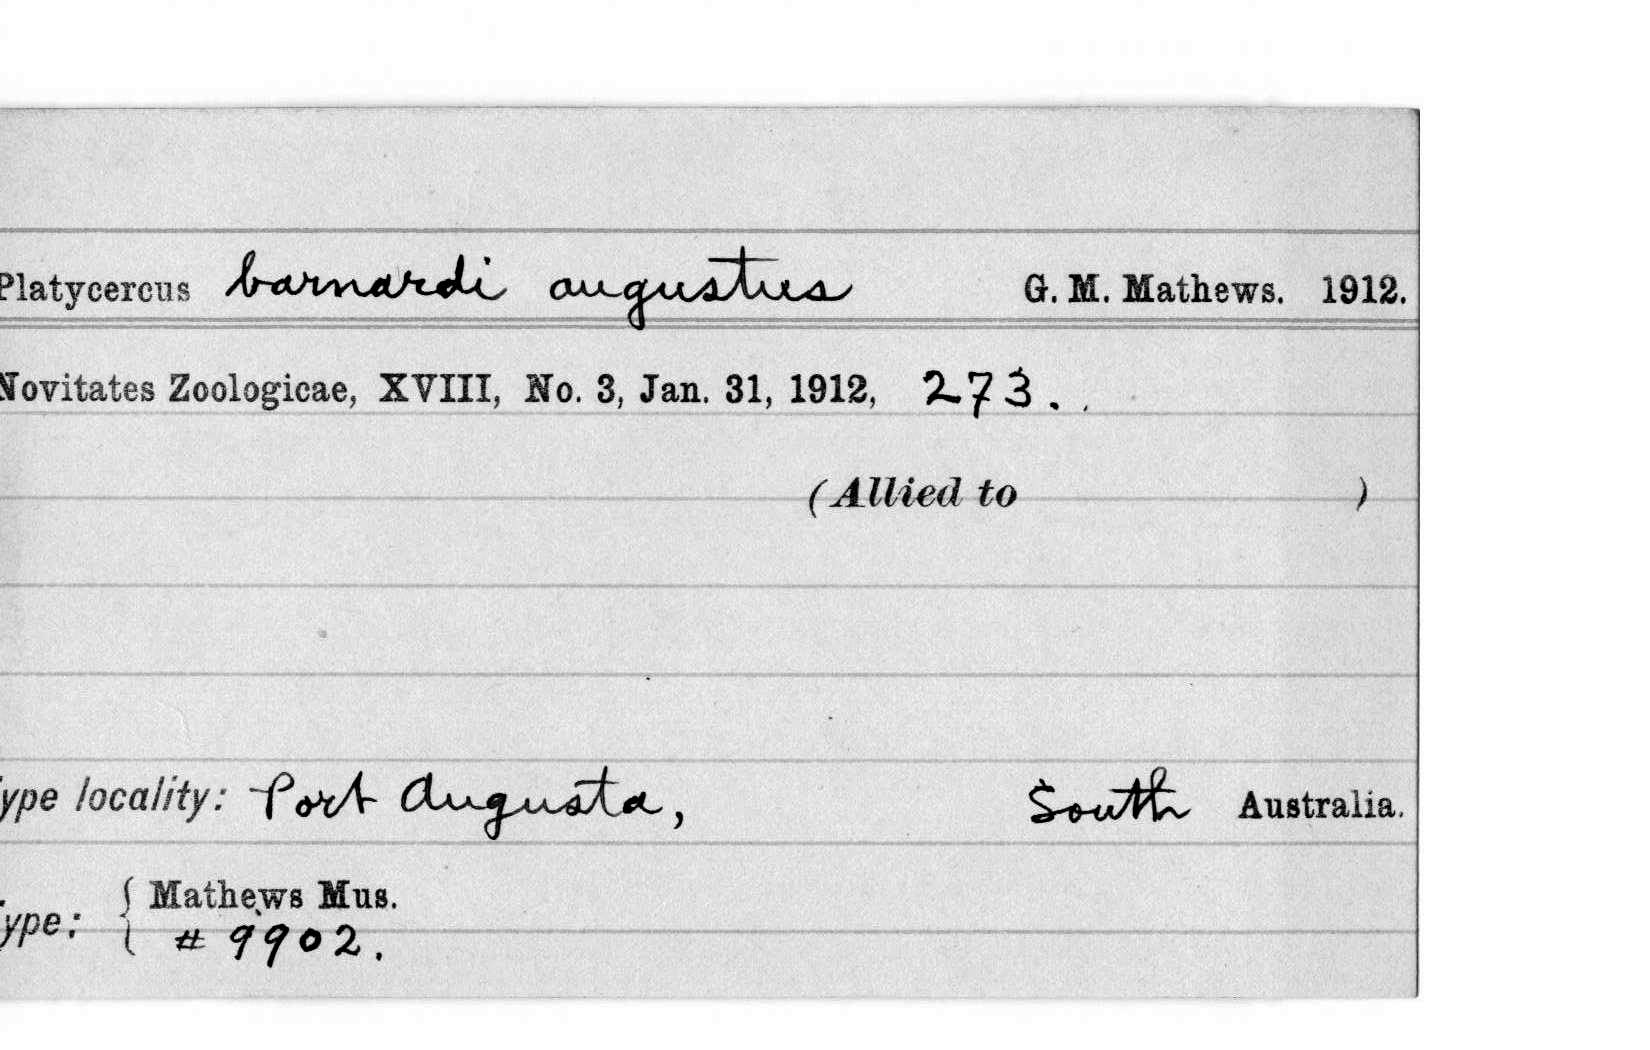 Platycercus barnardi augustus G. M. Mathews. 1912.
Novitates Zoologicae, XVIII, No. 3, Jan. 31, 1912, 273.
(Allied to )
ype locality: Port Augusta, South Australia.
ype: { Mathews Mus.
# 9902.